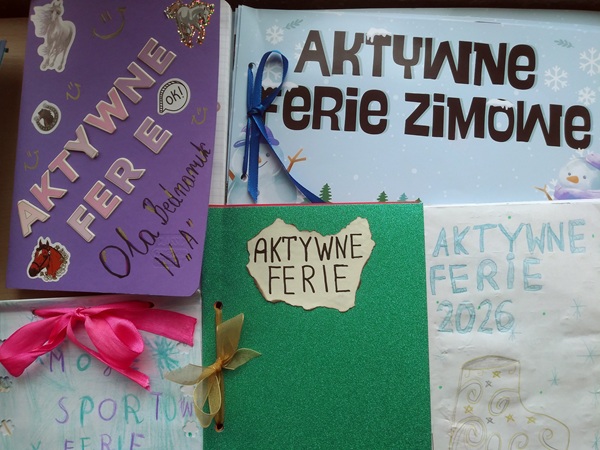 AKTYWNE
FERIE
OK!
Ola Bednaruk
IV „A”
AKTYWNE
FERIE ZIMOWE
AKTYWNE
FERIE
AKTYWNE
FERIE
2026
MO
SPORTOW
FERIE